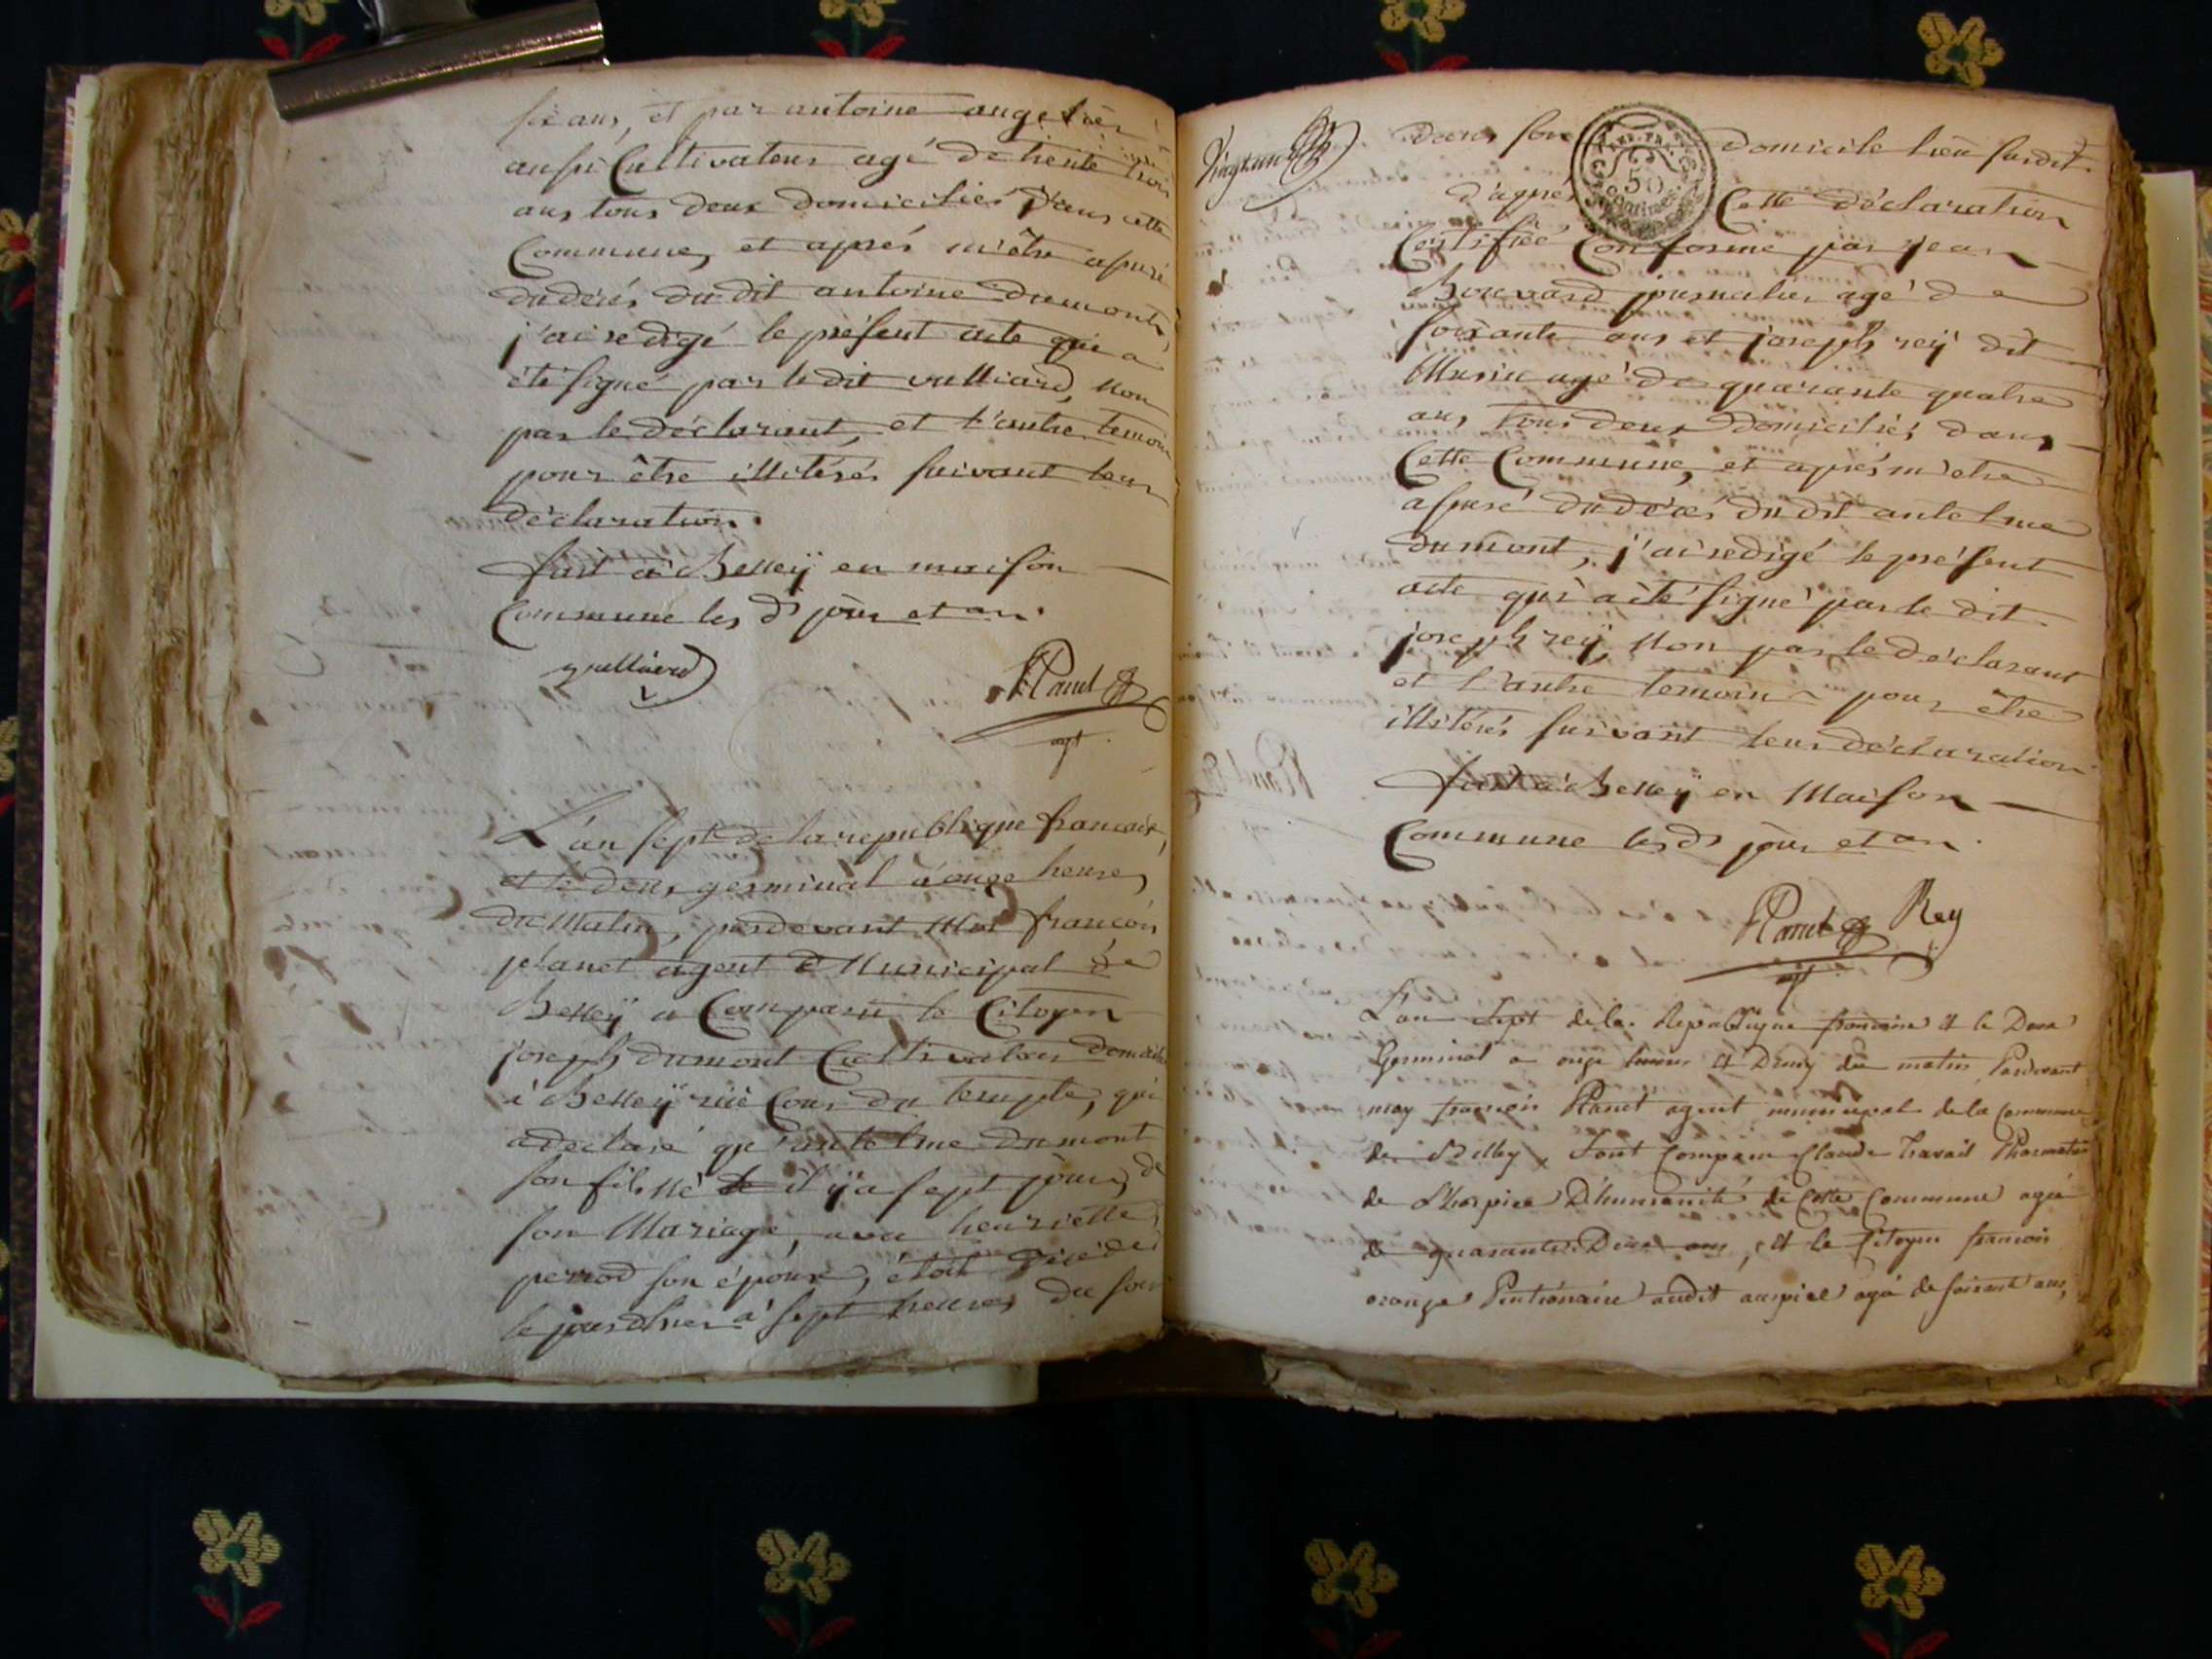 six ans, et par antoine angelier
aussi Cultivateur agé de trente trois
ans tous deux domiciliés dans cette
Commune, et aprés m'être assuré
du décés du dit antoine dumont,
j'ai redigé le présent acte qui a
été signé par le dit vulliard, non
par le déclarant, et l'autre temoin
pour être illitérés suivant leur
déclaration.
fait à Belleÿ en maison
Commune les d. jour et an.
vulliard
Planet
agt
L'an sept de la republique francoise,
et le deux germinal à onze heures
du Matin, pardevant Moi francois
planet agent Municipal de
Belleÿ a Comparu le Citoyen
joseph dumont Cultivateur domicilié
à Belleÿ rüe Cour du temple, qui
a declaré que antelme dumont
son fils né il ÿ a sept jours, de
son Mariage, avec henriette
perrod son épouse, étoit décédé
le jour d'hier à sept heures du soir
Vingt un
dans son domicile lieu susdit.
50
Centimes
d'aprés Cette déclaration
Certifiée Conforme par jean
Bouvard journalier agé de
soixante ans et joseph reÿ dit
Musin agé de quarante quatre
ans, tous deux domiciliés dans
Cette Commune, et aprés m'etre
assuré du décés du dit antelme
dumont, j'ai redigé le présent
acte qui a été signé par le dit
joseph reÿ, Non par le déclarant
et l'autre temoin pour être
illitérés suivant leur déclaration
fait à Belleÿ en Maison
Commune les d. jour et an.
Planet Rey
agt
L'an Sept de la Republique francoise et le Deux
Germinal a onze heures et Demy du matin Pardevant
moy francois Planet agent municipal de la Commune
de Belley, Sont Comparu Claude travail Pharmatien
de L'hospice D'humanité de Cette Commune agé
de quarante Deux ans, et le Citoyen francois
orange Pentionaire audit auspice agé de soisant ans,